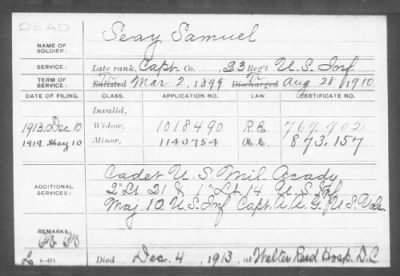 DEAD
NAME OF SOLDIER: Seay Samuel
SERVICE: Late rank, Capt. Co. 23 Reg't U.S. Inf.
TERM OF SERVICE: Enlisted Mar. 2, 1899 Discharged Aug 28, 1910
DATE OF FILING. CLASS. APPLICATION NO. LAW. CERTIFICATE NO.
Invalid,
1913. Dec 10 Widow, 1018490 R.E. 769.902
1919. May 10 Minor, 1140754 873,157
ADDITIONAL SERVICES: Cadet U.S. Mil. Acady
2" Lt. 21 & 1" Lt. 14 U.S. Inf
Maj. 10 U.S. Inf Capt. A.A.G. U.S. Vols
REMARKS:
Died Dec. 4, 1913, at Walter Reed Hosp. D.C.